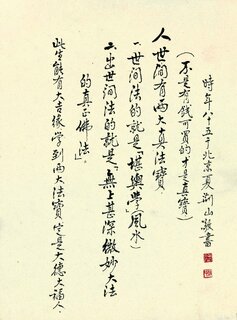 時年八十五于北京夏荆山敬書
(不是有錢可買的才是真寶)
人世间有兩大真法寶
一世间法的就是「堪輿學」風水
二出世间法的就是「無上甚深微妙大法
的真正佛法」。
此生能有大吉缘学到兩大法寶定是大德大福人.